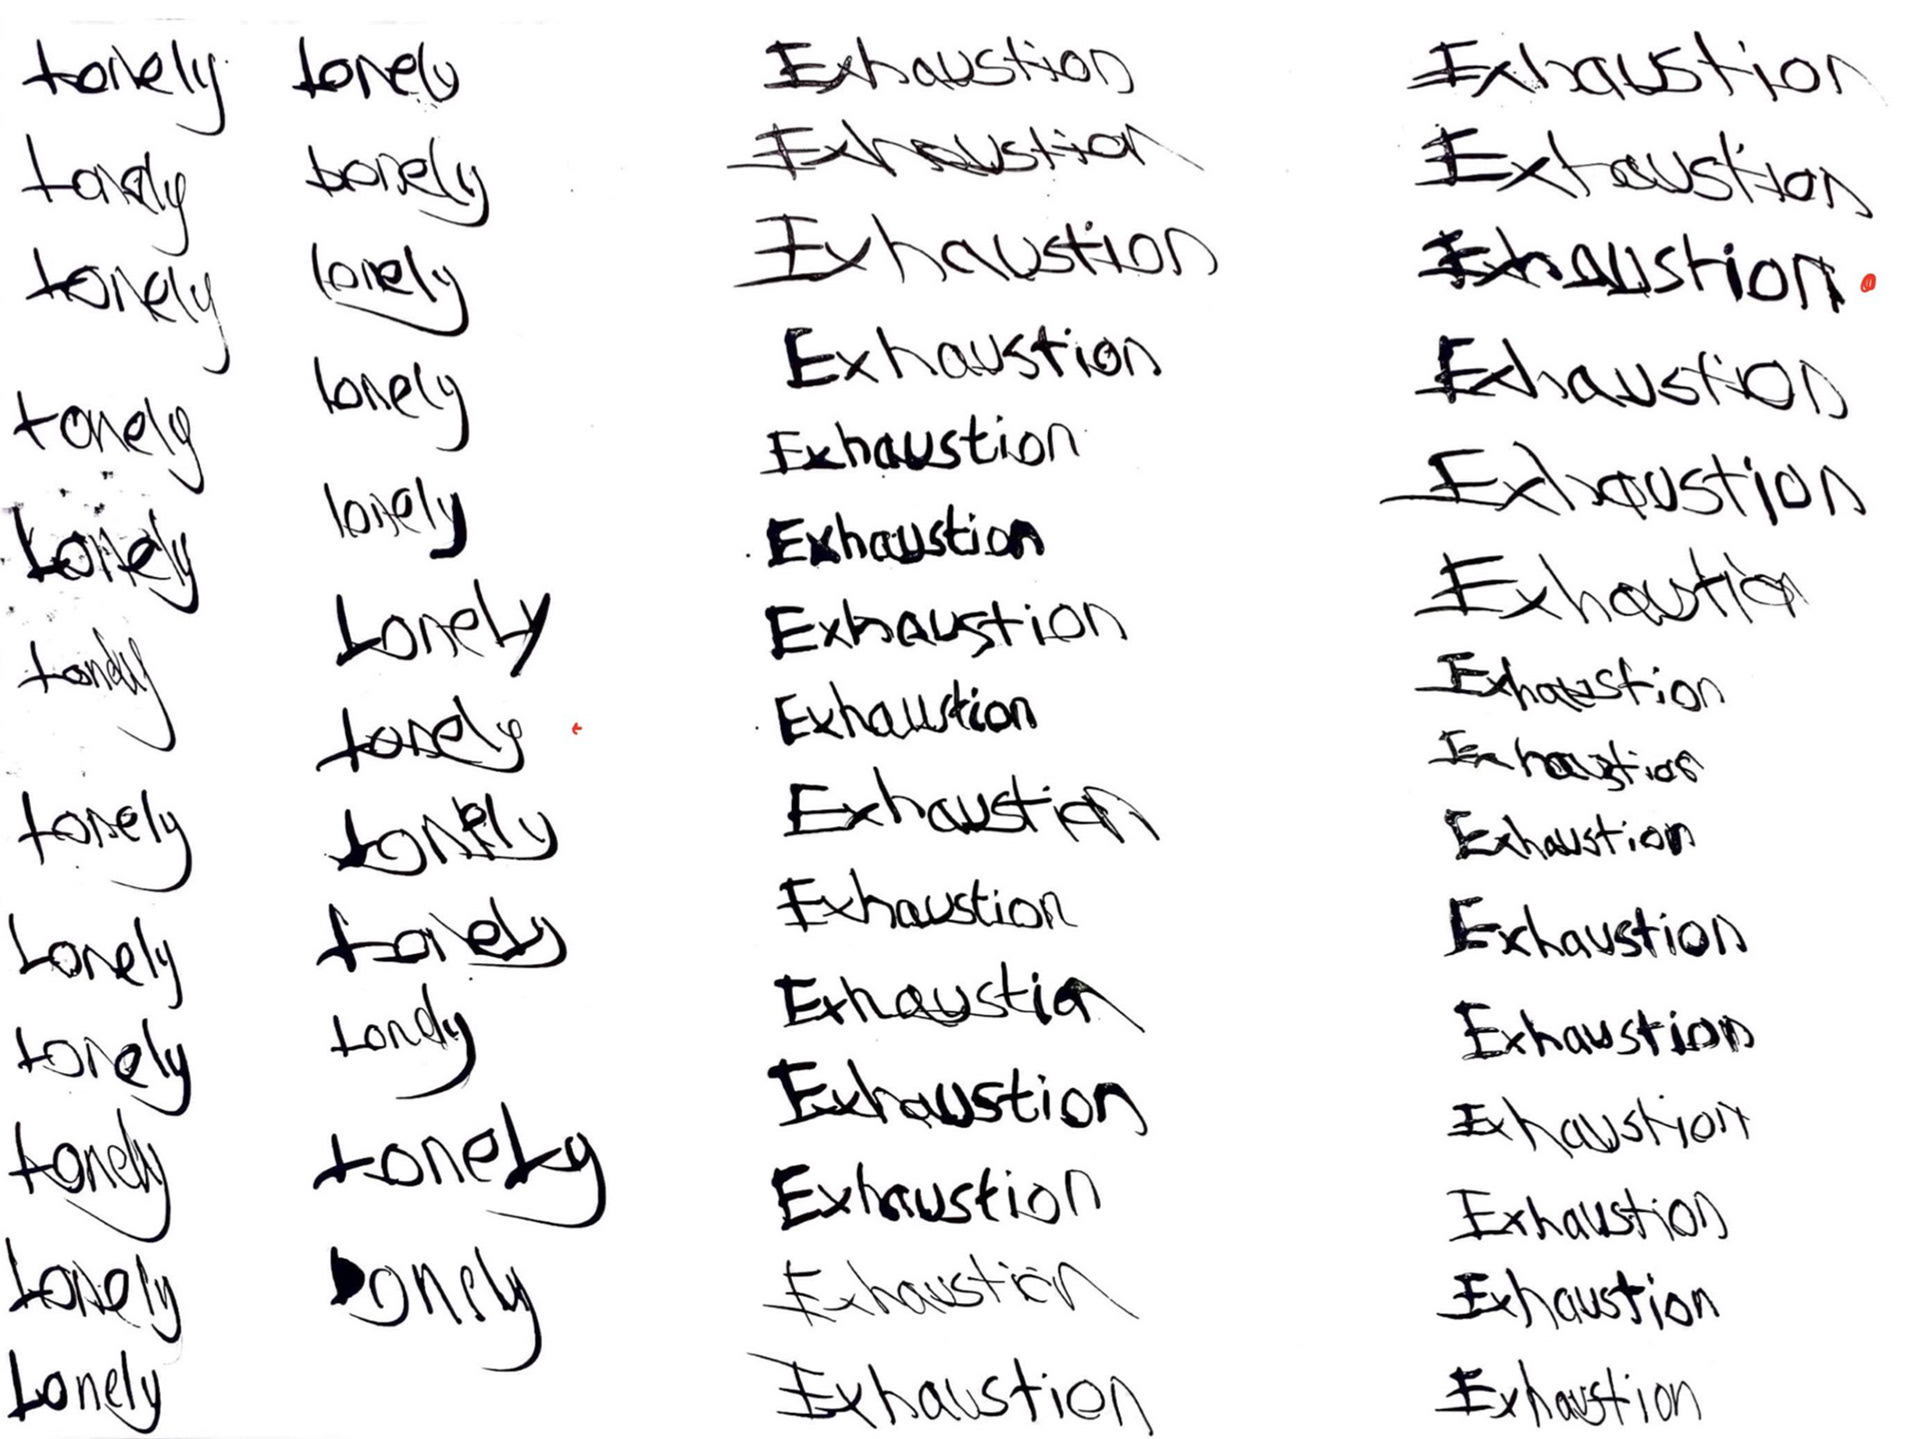 Lonely
Lonely
Lonely
Lonely
Lonely
Lonely
Lonely
Lonely
Lonely
Lonely
Lonely
Lonely
Lonely
Lonely
lonely
lonely
lonely
LoneLy
Lonely
Lonely
Lonely
Lonely
LoneLy
Lonely
Exhaustion
Exhaustion
Exhaustion
Exhaustion
Exhaustion
Exhaustion
Exhaustion
Exhaustion
Exhaustion
Exhaustion
Exhaustion
Exhaustion
Exhaustion
Exhaustion
Exhaustion
Exhaustion
Exhaustion
Exhaustion
Exhaustion
Exhaustion
Exhaustion
Exhaustion
Exhaustion
Exhaustion
Exhaustion
Exhaustion
Exhaustion
Exhaustion
Exhaustion
Exhaustion